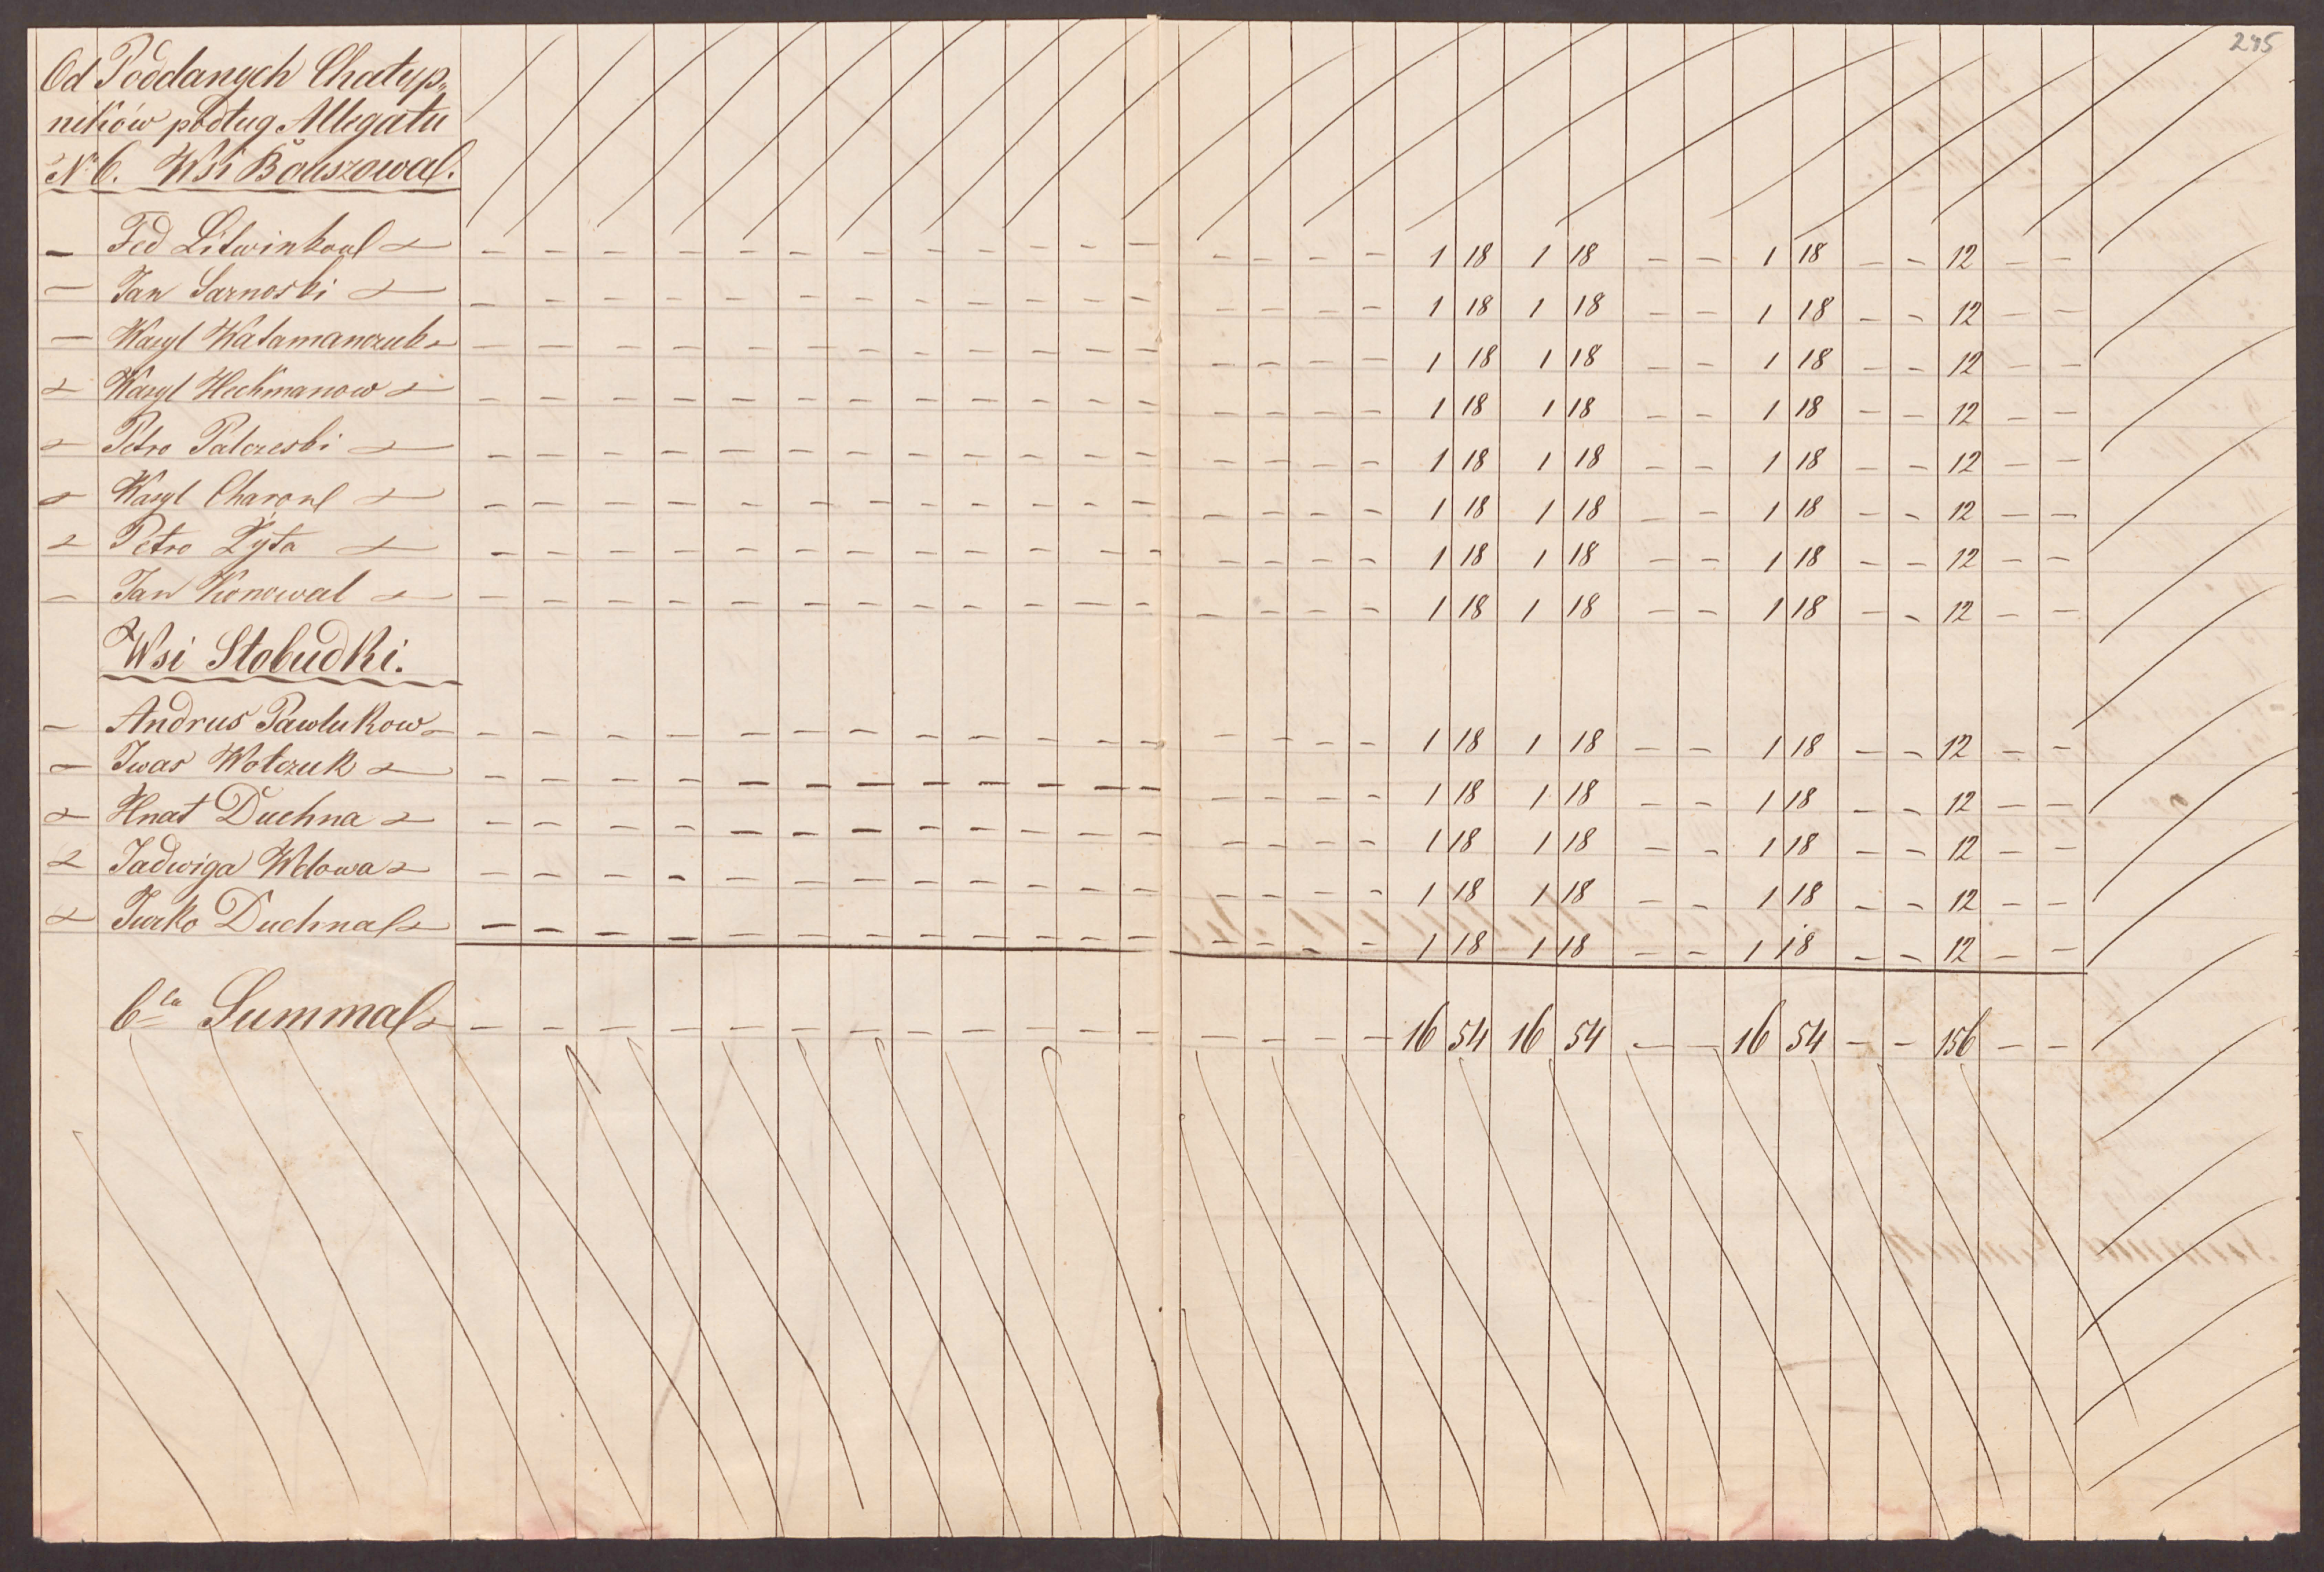 245
Od Poddanych Chałyp„
ników podług Allegatu
N° 6. Wsi Bouszowa.
— Fed Litwinkow — — — 1 18 1 18 — — 1 18 — — 12 — —
— Jan Sarnoski — — — 1 18 1 18 — — 1 18 — — 12 — —
— Wasyl Watamanczuk — — — 1 18 1 18 — — 1 18 — — 12 — —
— Wasyl Heckmanow — — — 1 18 1 18 — — 1 18 — — 12 — —
— Petro Palczeski — — — 1 18 1 18 — — 1 18 — — 12 — —
— Wasyl Charow — — — 1 18 1 18 — — 1 18 — — 12 — —
— Petro Zyta — — — 1 18 1 18 — — 1 18 — — 12 — —
— Jan Konowal — — — 1 18 1 18 — — 1 18 — — 12 — —
Wsi Słobudki.
— Andrus Pawlukow — — — 1 18 1 18 — — 1 18 — — 12 — —
— Iwas Wołczuk — — — 1 18 1 18 — — 1 18 — — 12 — —
— Hnat Duchna — — — 1 18 1 18 — — 1 18 — — 12 — —
— Jadwiga Welowa — — — 1 18 1 18 — — 1 18 — — 12 — —
— Jurko Duchna — — — 1 18 1 18 — — 1 18 — — 12 — —
6ta Summa — — — 16 54 16 54 — — 16 54 — — 156 — —